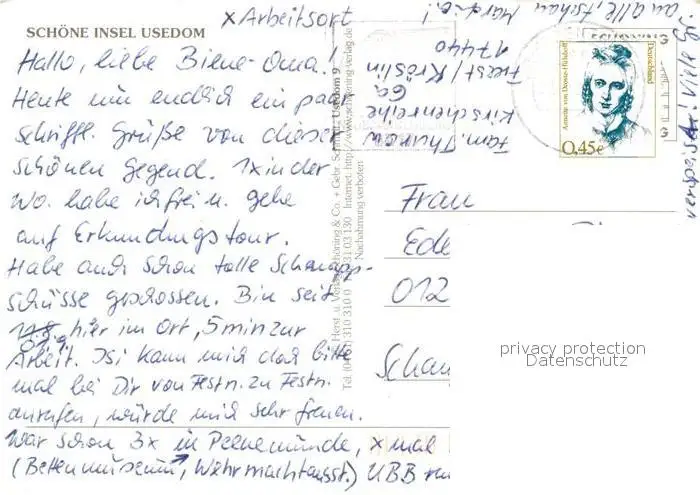 x Arbeitsort
SCHÖNE INSEL USEDOM
Hallo, liebe Biene-Oma!
Heute nun endlich ein paar
schriftl. Grüße von dieser
schönen Gegend. 1x in der
Wo. habe ich frei u. gehe
auf Erkundungstour.
Habe auch schon tolle Schnapp-
schüsse geschossen. Bin seit
hier im Ort, 5 min zur
Arbeit. Isi kann mich doch bitte
mal bei Dir von Festn. zu Festn.
anrufen, würde mich sehr freuen.
War schon 3x in Peenemünde, x mal
(Bettenmuseum, Wehrmachtsausst.) UBB
an alle, tschau
Fam. Thurow
Kirschenreihe
6a
Freest/Kröslin
17440
Schöning & Co. + Gebr. Schmidt Usedom 9
Internet: http://www.schoening-verlag.de
Nachahmung verboten
Annette von Droste-Hülshoff
Deutschland
0,45€
Frau
Ede
012
Schau
privacy protection
Datenschutz